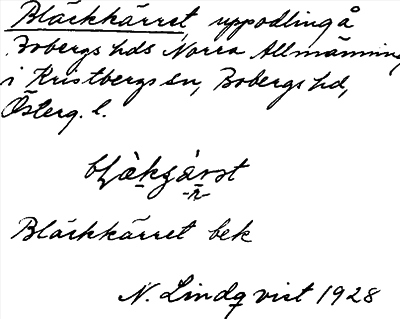 Bläckkärret, uppodling å
Bobergs hds Norra Allmänning
i Kristbergs sn, Bobergs hd,
Österg. l.
Bläckkärret bek
N. Lindqvist 1928